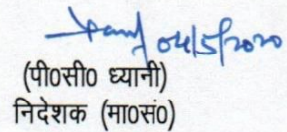 04/5/2020
(पी0सी0 ध्यानी)
निदेशक (मा0सं0)